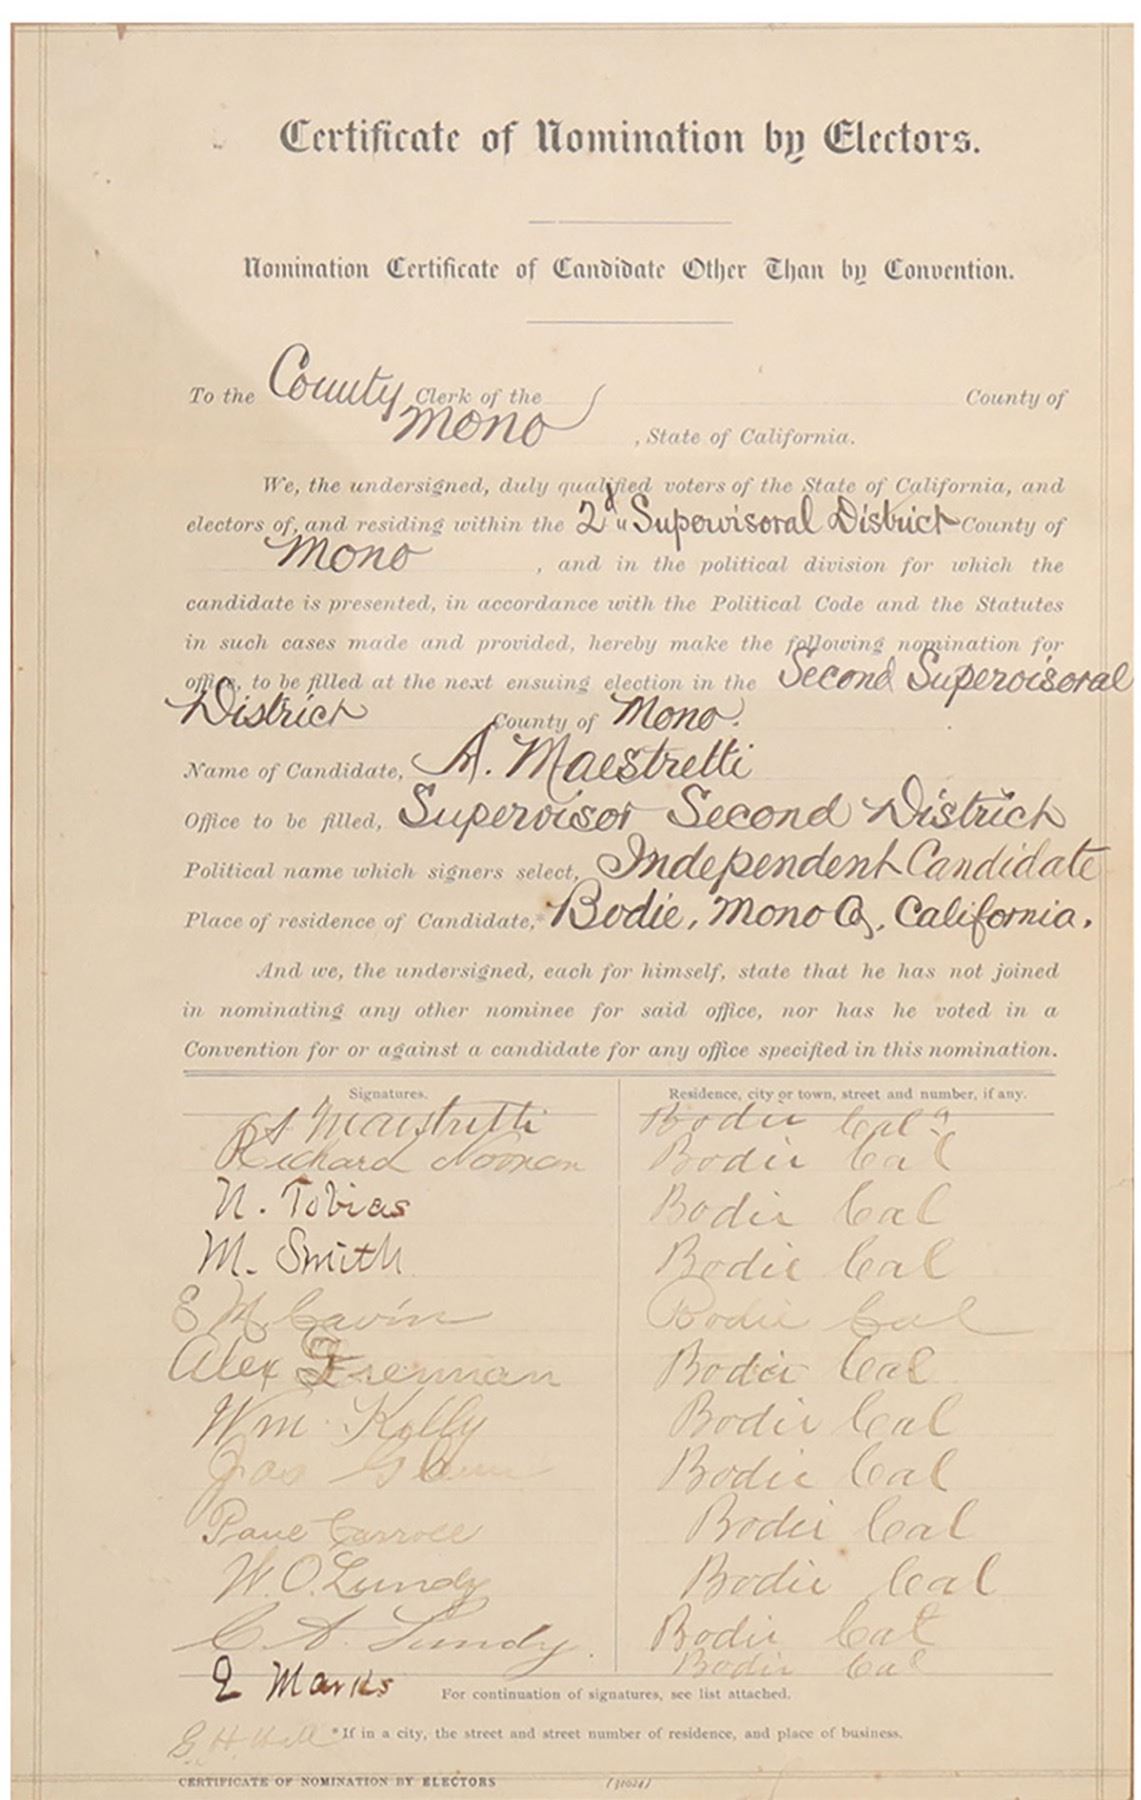 Certificate of Nomination by Electors.
Nomination Certificate of Candidate Other Than by Convention.
To the County Clerk of the County of
Mono , State of California.
We, the undersigned, duly qualified voters of the State of California, and
electors of, and residing within the 2d Supervisoral District County of
Mono , and in the political division for which the
candidate is presented, in accordance with the Political Code and the Statutes
in such cases made and provided, hereby make the following nomination for
office, to be filled at the next ensuing election in the Second Supervisoral
District County of Mono.
Name of Candidate, A. Maestretti
Office to be filled, Supervisor Second District
Political name which signers select, Independent Candidate
Place of residence of Candidate,* Bodie, Mono Co, California.
And we, the undersigned, each for himself, state that he has not joined
in nominating any other nominee for said office, nor has he voted in a
Convention for or against a candidate for any office specified in this nomination.
Signatures. Residence, city or town, street and number, if any.
A Maestretti Bodie Cal
Richard Noonan Bodie Cal
N. Tobias Bodie Cal
M. Smith Bodie Cal
E M Cavin Bodie Cal
Alex Bodie Cal
Wm. Kelly Bodie Cal
Jas Bodie Cal
Carroll Bodie Cal
W. O. Lundy Bodie Cal
C A. Lundy. Bodie Cal
Marks Bodie Cal
For continuation of signatures, see list attached.
E. H. Hill *If in a city, the street and street number of residence, and place of business.
CERTIFICATE OF NOMINATION BY ELECTORS